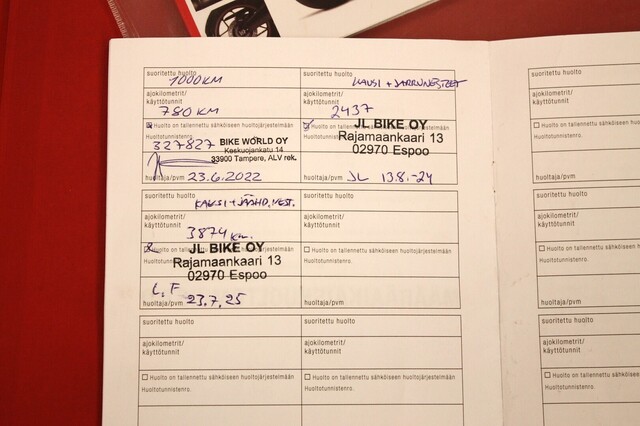 suoritettu huolto
1000KM
ajokilometrit/
käyttötunnit
780 KM
Huolto on tallennettu sähköiseen huoltojärjestelmään
Huoltotunnistenro.
327827
BIKE WORLD OY
Keskuojankatu 14
33900 Tampere, ALV rek.
huoltaja/pvm 23.6.2022
suoritettu huolto
KAUSI + JARRUNESTEET
ajokilometrit/
käyttötunnit
2437
Huolto on tallennettu sähköiseen huoltojärjestelmään
Huoltotunnistenro.
JL BIKE OY
Rajamaankaari 13
02970 Espoo
huoltaja/pvm JL 13.8.-24
suoritettu huolto
KAUSI + JÄÄHD.NEST.
ajokilometrit/
käyttötunnit
3874 Km.
Huolto on tallennettu sähköiseen huoltojärjestelmään
Huoltotunnistenro.
JL BIKE OY
Rajamaankaari 13
02970 Espoo
L.F
huoltaja/pvm 23.7.25
suoritettu huolto
ajokilometrit/
käyttötunnit
Huolto on tallennettu sähköiseen huoltojärjestelmään
Huoltotunnistenro.
huoltaja/pvm
suoritettu huolto
ajokilometrit/
käyttötunnit
Huolto on tallennettu sähköiseen huoltojärjestelmään
Huoltotunnistenro.
suoritettu huolto
ajokilometrit/
käyttötunnit
Huolto on tallennettu sähköiseen huoltojärjestelmään
Huoltotunnistenro.
suoritettu huolto
ajokilometrit/
käyttötunnit
Huolto on tallennettu
Huoltotunnistenro.
huoltaja/pvm
suoritettu huolto
ajokilometrit/
käyttötunnit
Huolto on tallennettu s
Huoltotunnistenro.
huoltaja/pvm
suoritettu huolto
ajokilometrit/
käyttötunnit
Huolto on tallennettu
Huoltotunnistenro.